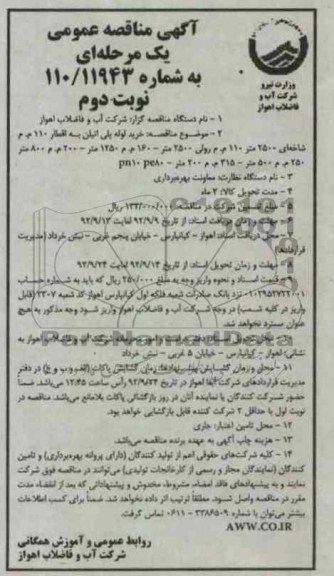 آگهی مناقصه عمومی
یک مرحله‌ای
به شماره ۱۱۰/۱۱۹۴۳
نوبت دوم
وزارت نیرو
شرکت آب و
فاضلاب اهواز
۱ - نام دستگاه مناقصه گزار: شرکت آب و فاضلاب اهواز
۲ - موضوع مناقصه: خرید لوله پلی اتیلن به اقطار ۱۱۰ م م
شاخه‌ای ۲۵۰۰ متر ۱۱۰ م م رولی ۲۵۰۰ متر - ۱۶۰ م م ۱۲۵۰ متر - ۲۰۰ م م ۸۰۰ متر
۲۵۰ م م ۵۰۰ متر - ۳۱۵ م م ۲۰۰ متر - pn10 pe80
۳ - دستگاه نظارت: معاونت بهره‌برداری
۴ - مدت تحویل کالا: ۲ ماه
شرکت در مناقصه: ریال
مهلت و زمان دریافت اسناد: از تاریخ ۹۲/۹/۹ لغایت ۹۲/۹/۱۳
۷ - محل دریافت اسناد: اهواز - کیانپارس - خیابان پنجم غربی - نبش خرداد (مدیریت
قراردادها)
مهلت و زمان تحویل اسناد: از تاریخ ۹۲/۹/۱۴ لغایت ۹۲/۹/۲۴
قیمت اسناد و نحوه واریز وجه به مبلغ ۲۵۰/۰۰۰ ریال که باید به شماره حساب
نزد بانک صادرات شعبه فلکه اول کیانپارس اهواز کد شعبه ۲۳۰۷ (قابل
واریز در کلیه شعب) در وجه شرکت آب و فاضلاب اهواز واریز شود وجه مذکور به هیچ
عنوان مسترد نخواهد شد.
محل تحویل اسناد: شرکت آب و فاضلاب اهواز به
نشانی: اهواز - کیانپارس - خیابان ۵ غربی - نبش خرداد
۱۱ - محل و زمان گشایش پیشنهادها: زمان گشایش پاکات (الف و ب و ج) در دفتر
مدیریت قراردادهای شرکت آبفا اهواز در تاریخ ۹۲/۹/۲۴ رأس ساعت ۱۲:۴۵ می‌باشد. ضمناً
حضور شرکت کنندگان یا نماینده آنان در روز بازگشائی پاکات بلامانع می‌باشد. مناقصه در
نوبت اول با حداقل ۲ شرکت کننده قابل بازگشایی خواهد بود.
۱۲ - محل تامین اعتبار: جاری
۱۳ - هزینه چاپ آگهی به عهده برنده مناقصه می‌باشد.
۱۴ - کلیه شرکت‌های حقوقی اعم از تولید کنندگان (دارای پروانه بهره‌برداری) و تامین
کنندگان (نمایندگان مجاز و رسمی از کارخانجات تولیدی) می‌توانند در مناقصه فوق شرکت
نمایند و به پیشنهادهای فاقد امضاء، مشروط، مخدوش و پیشنهاداتی که بعد از انقضاء مدت
مقرر در مناقصه واصل شود، مطلقا ترتیب اثر داده نخواهد شد. ضمناً برای کسب اطلاعات
بیشتر می‌توان با شماره ۳۳۸۶۵۰۹ - ۰۶۱۱ تماس گرفت.
AWW.CO.IR
روابط عمومی و آموزش همگانی
شرکت آب و فاضلاب اهواز